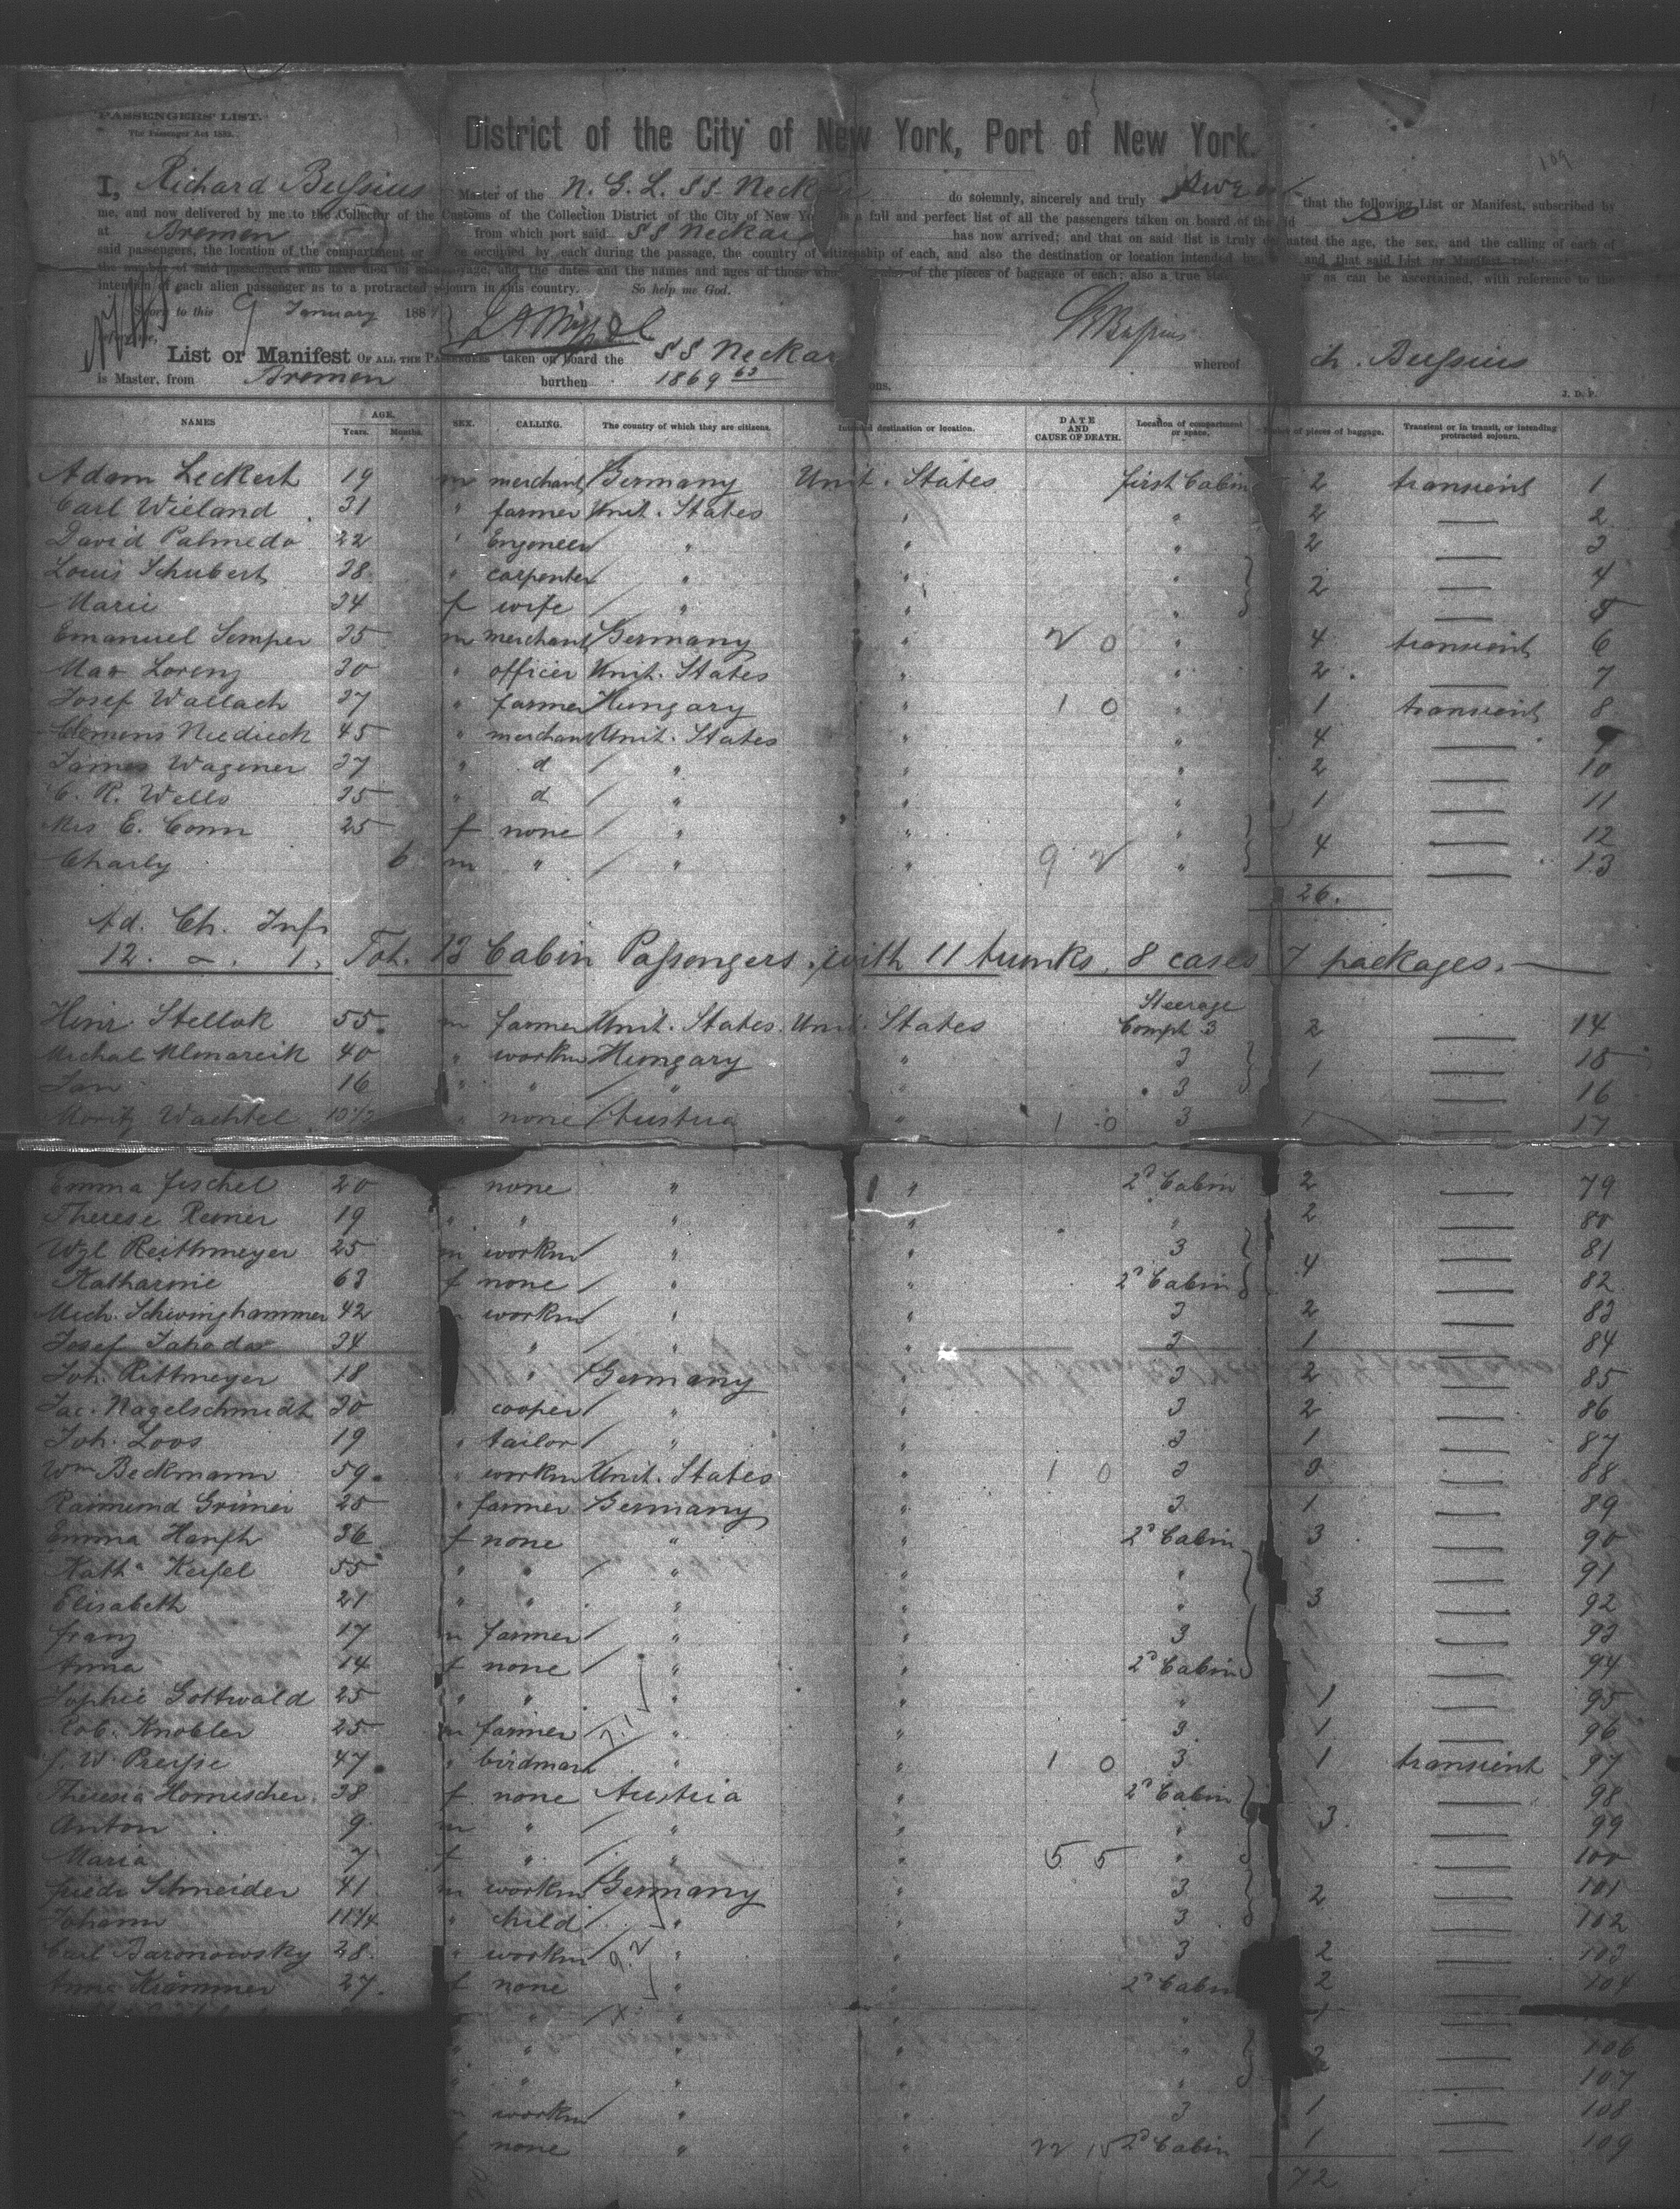 PASSENGERS' LIST.
The Passenger Act 1882.
District of the City of New York, Port of New York.
I, Richard Bussius Master of the N. G. L. SS. Neckar do solemnly, sincerely and truly that the following List or Manifest, subscribed by
me, and now delivered by me to the Collector of the Customs of the Collection District of the City of New York is a full and perfect list of all the passengers taken on board of the said
at Bremen from which port said SS Neckar has now arrived; and that on said list is truly designated the age, the sex, and the calling of each of
said passengers, the location of the compartment or occupied by each during the passage, the country of citizenship of each, and also the destination or location intended by and that said List or Manifest
the number of said passengers who have died on voyage, and the dates and the names and ages of those who of the pieces of baggage of each; also a true or as can be ascertained, with reference to the
intention of each alien passenger as to a protracted sojourn in this country. So help me God.
Sworn to this 9 January 188
List or Manifest OF ALL THE PASSENGERS taken on board the SS Neckar whereof Bussius
is Master, from Bremen burthen 1869 63 tons.
J. D. P.
NAMES AGE. Years. Months. SEX. CALLING. The country of which they are citizens. Intended destination or location. DATE AND CAUSE OF DEATH. Location of compartment or space. Number of pieces of baggage. Transient or in transit, or intending protracted sojourn.
Adam Leckert 19 m merchant Germany Unit. States first Cabin 2 transient 1
Carl Wieland 31 " farmer Unit. States " " 2 — 2
David Palmedo 22 " Engeneer " " " 2 — 3
Louis Schubert 38 " carpenter " " " 2 — 4
Marie 34 f wife " " " — 5
Emanuel Semper 35 m merchant Germany " 2 0 " 4 transient 6
Max Lorenz 30 " officer Unit. States " " 2 — 7
Josef Wallach 37 " farmer Hungary " 1 0 " 1 transient 8
Clemens Niedieck 45 " merchant Unit. States " " 4 — 9
James Wagener 37 " d " " " 2 — 10
C. R. Wells 35 " d " " " 1 — 11
Mrs E. Conn 25 f none " " " 4 — 12
Charly 6 m " " " 9 2 " — 13
26.
Ad. Ch. Inf.
12. — . 1. Tot. 13 Cabin Passengers, with 11 trunks, 8 cases 7 packages. —
Steerage
Heinr. Stellok 55 m farmer Unit. States. Unit. States Compt. 3 2 — 14
Michal Klonarcik 40 " workm Hungary " 3 1 — 15
Jan 16 " " " " 3 — 16
Moritz Wachtel 10½ " none Austria " 1 0 3 1 — 17
Emma Fischel 20 none " " 2d Cabin 2 — 79
Therese Reiner 19 " " " " " 2 — 80
Wzl Reithmeyer 25 m workm " " 3 4 — 81
Katharine 63 f none " " 2d Cabin — 82
Mich. Schwinghammer 42 workm " " 3 2 — 83
Josef Jahoda 34 " " " 3 1 — 84
Joh. Rittmeyer 18 " Germany " 3 2 — 85
Jac. Nagelschmidt 30 cooper " " 3 2 — 86
Joh. Loos 19 " tailor " " 3 1 — 87
Wm Beckmann 59 " workm Unit. States " 1 0 3 3 — 88
Raimund Grüner 25 " farmer Germany " 3 1 — 89
Emma Hanft 36 f none " " 2d Cabin 3 — 90
Kath. Keifel 55 " " " " " — 91
Elisabeth 21 " " " " " 3 — 92
Franz 17 m farmer " " 3 — 93
Anna 14 f none " " 2d Cabin — 94
Sophie Gottwald 25 " " " " " 1 — 95
Rob. Knobler 25 m farmer " " 3 1 — 96
F. W. Preusse 47 " birdman " " 1 0 3 1 transient 97
Theresia Hornischer 38 f none Austria " 2d Cabin — 98
Anton 9 m " " " " 3 — 99
Maria 7 f " " " 5 5 " — 100
Friedr. Schneider 41 m workm Germany " 3 2 — 101
Johann 11¼ " child " " 3 — 102
Carl Baronowsky 28 " workm " " 3 2 — 103
Anna Krämmer 27 f none " " 2d Cabin 2 — 104
" " " " 1 —
" " " " 2 — 106
" " " " — 107
workm " " 3 1 — 108
none " " 22 15 2d Cabin 1 — 109
72